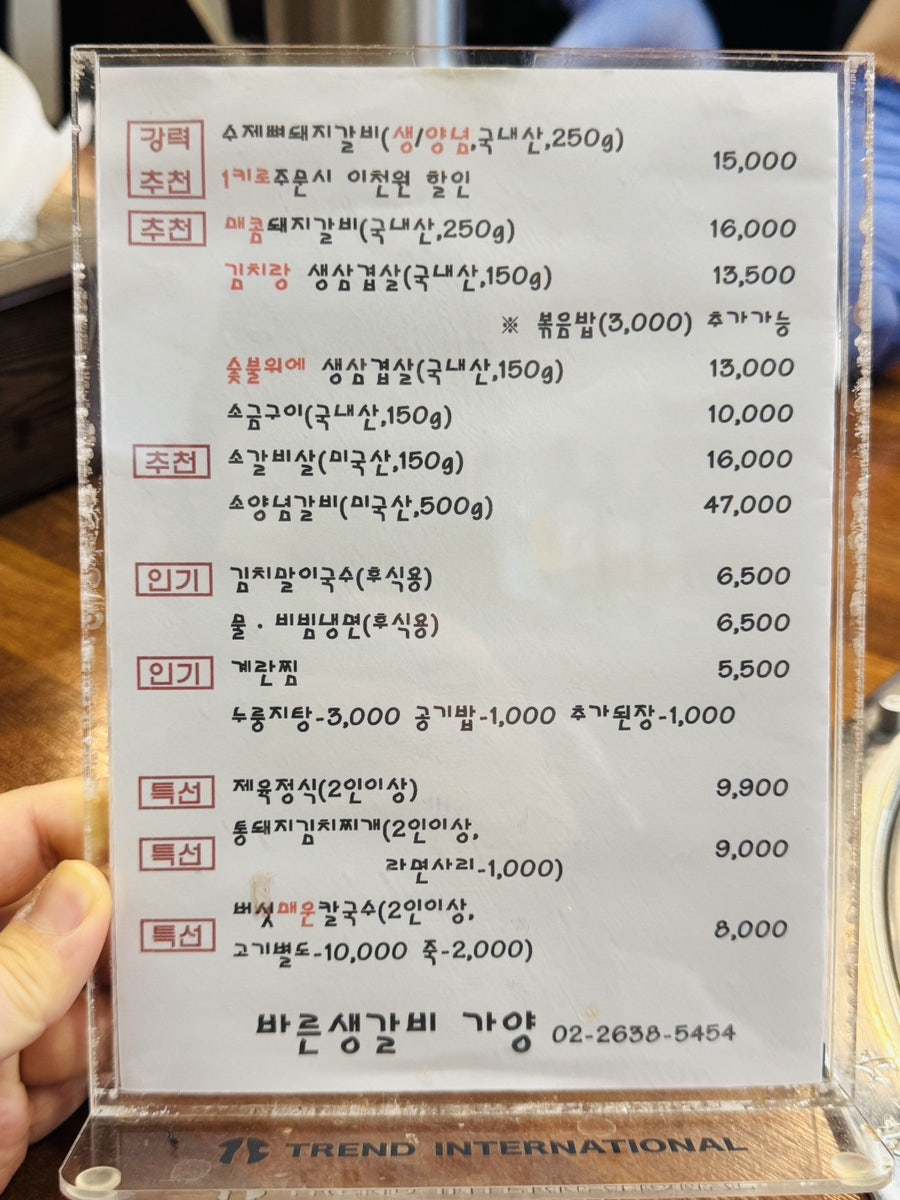 강력 수제뼈돼지갈비(생/양념,국내산,250g) 15,000
추천 1키로주문시 이천원 할인
추천 매콤돼지갈비(국내산,250g) 16,000
김치랑 생삼겹살(국내산,150g) 13,500
※ 볶음밥(3,000) 추가가능
숯불위에 생삼겹살(국내산,150g) 13,000
소금구이(국내산,150g) 10,000
추천 소갈비살(미국산,150g) 16,000
소양념갈비(미국산,500g) 47,000
인기 김치말이국수(후식용) 6,500
물·비빔냉면(후식용) 6,500
인기 계란찜 5,500
누룽지탕-3,000 공기밥-1,000 추가된장-1,000
특선 제육정식(2인이상) 9,900
특선 통돼지김치찌개(2인이상, 9,000
라면사리-1,000)
특선 버섯매운칼국수(2인이상, 8,000
고기별도-10,000 죽-2,000)
바른생갈비 가양 02-2638-5454
TREND INTERNATIONAL